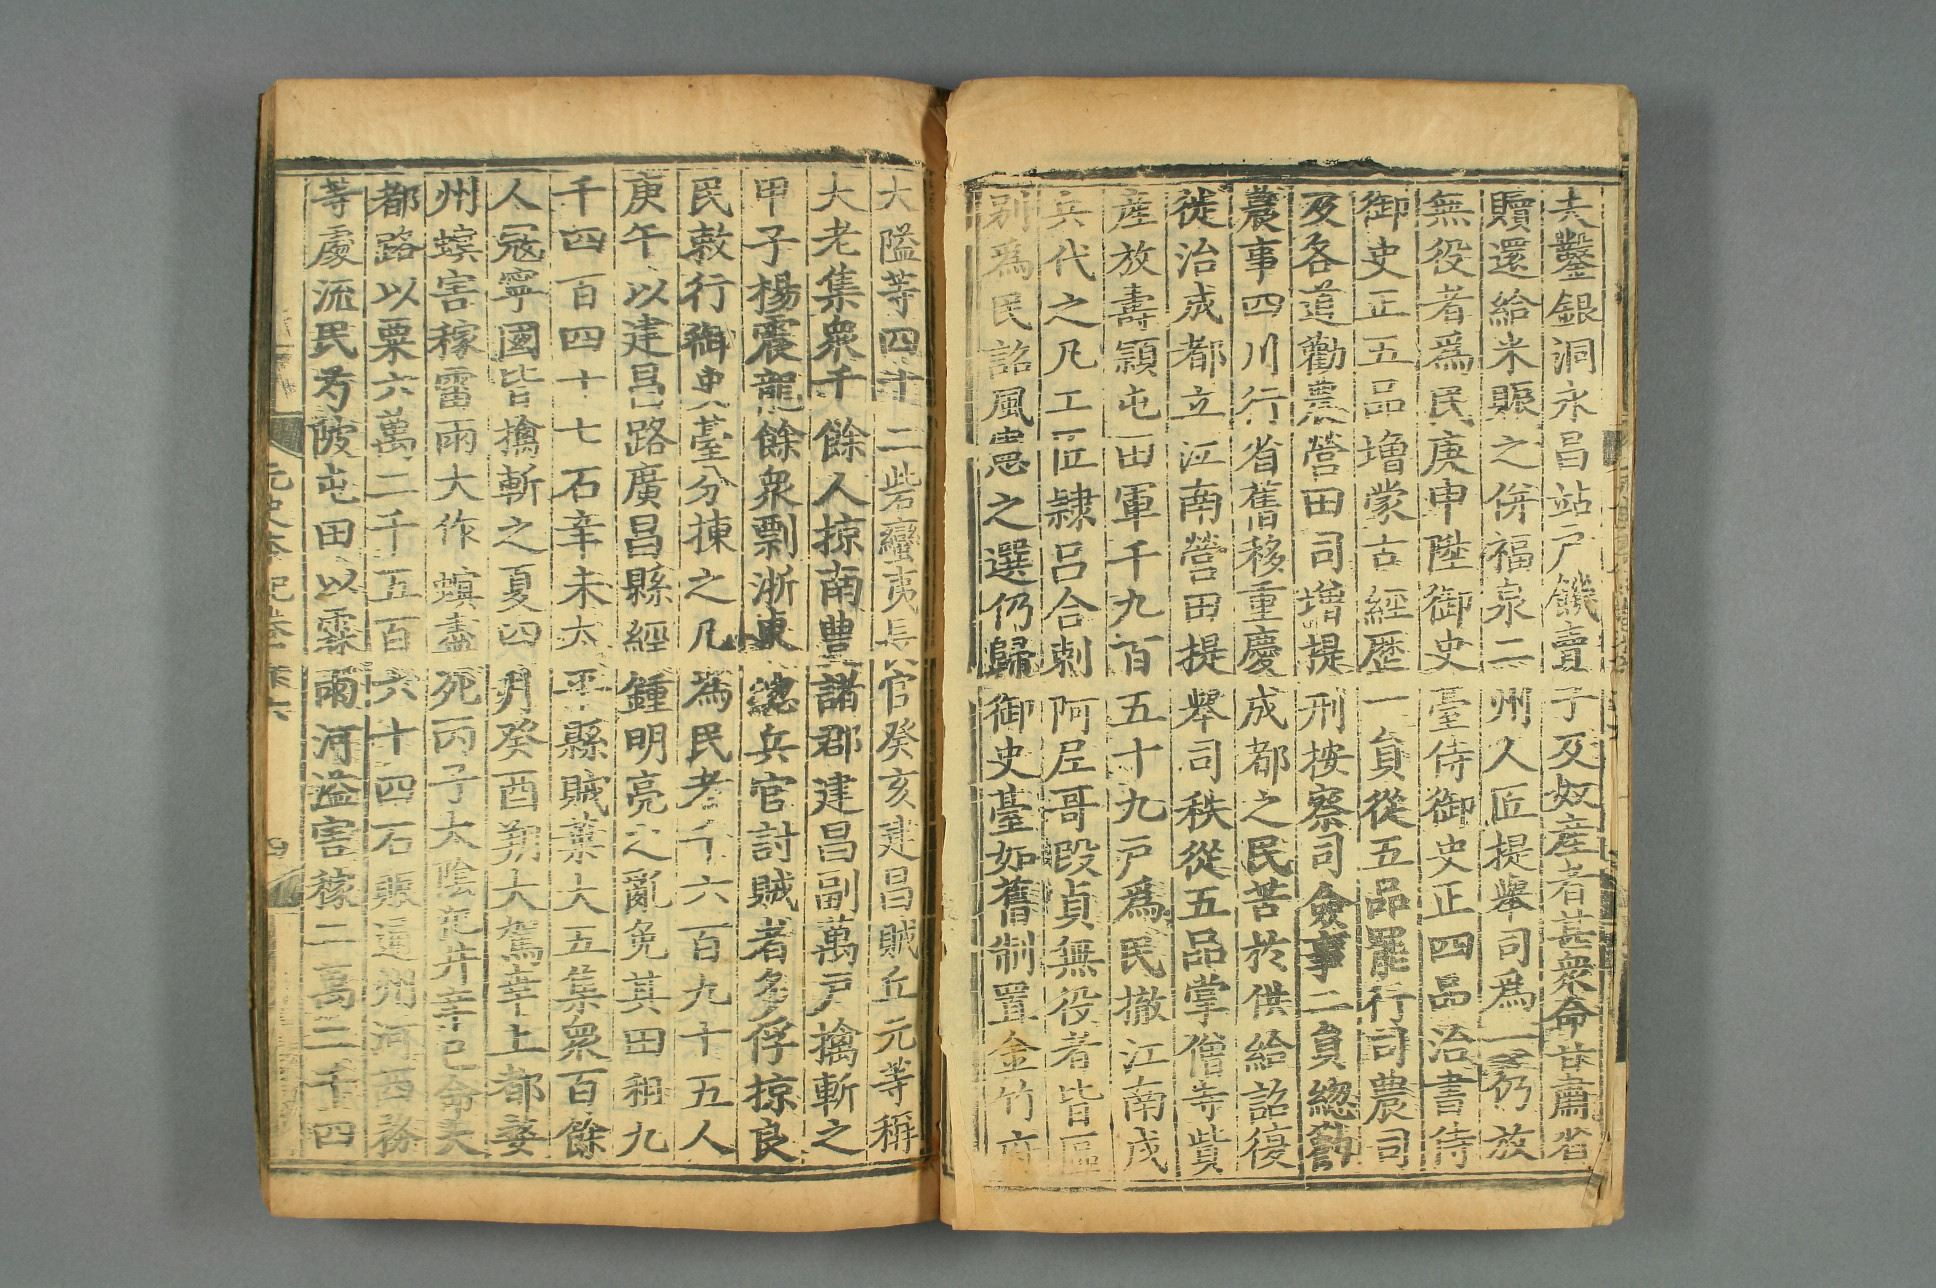 夫鑿銀洞永昌站戶饑賣子及奴產者甚衆命甘肅省
贖還給米賑之併福泉二州人匠提舉司爲一仍放
無役者爲民庚申陞御史臺侍御史正四品治書侍
御史正五品增蒙古經歷一員從五品罷行司農司
及各道勸農營田司增提刑按察司僉事二員緫勸
農事四川行省舊移重慶成都之民苦於供給詔復
徙治成都立江南營田提舉司秩從五品掌僧寺貲
產放壽潁屯田軍千九百五十九戶爲民撤江南戍
兵代之凡工匠隸呂合剌阿尼哥段貞無役者皆區
別爲民詔風憲之選仍歸御史臺如舊制置金竹府
大隘等四十二砦蠻夷長官癸亥建昌賊丘元等稱
大老集衆千餘人掠南豊諸郡建昌副萬戶擒斬之
甲子楊震龍餘衆剽浙東緫兵官討賊者多俘掠良
民敕行御史臺分揀之凡爲民者千六百九十五人
庚午以建昌路廣昌縣經鍾明亮之亂免其田租九
千四百四十七石辛未太平縣賊葉大五集衆百餘
人寇寧國皆擒斬之夏四月癸酉朔大駕幸上都婺
州螟害稼雷雨大作螟盡死丙子太陰犯井辛巳命大
都路以粟六萬二千五百六十四石賑通州河西務
等處流民芍陂屯田以霖雨河溢害稼二萬二千四
元史本紀卷十六
四